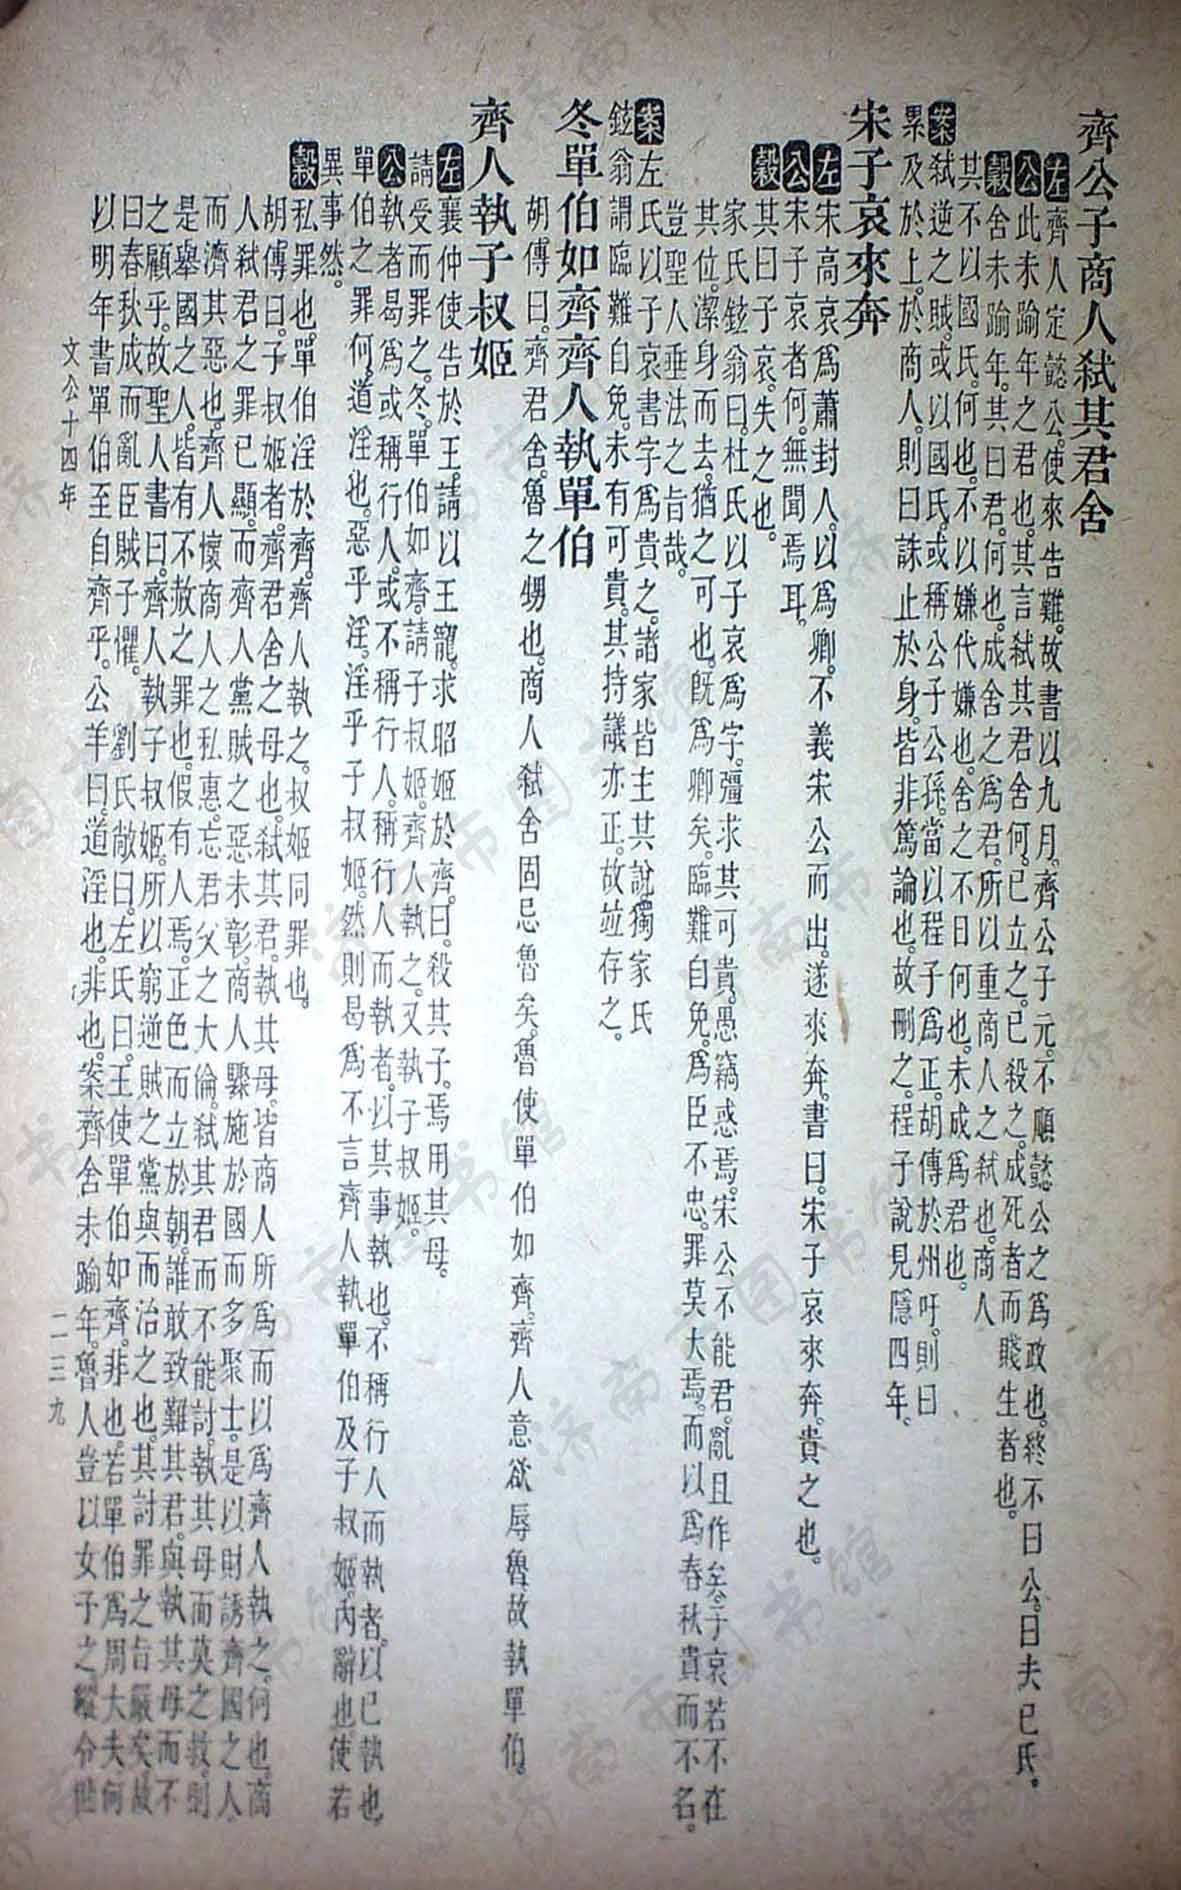 齊公子商人弑其君舍
左齊人定懿公使來告難故書以九月齊公子元不順懿公之爲政也終不曰公曰夫已氏。
公此未踰年之君也其言弑其君舍何已立之已殺之成死者而賤生者也。
穀舍未踰年其曰君何也成舍之爲君所以重商人之弑也商人
其不以國氏何也不以嫌代嫌也舍之不日何也未成爲君也。
案弑逆之賊或以國氏或稱公子公孫當以程子爲正胡傳於州吁則曰
累及於上於商人則曰誅止於身皆非篤論也故刪之程子說見隱四年。
宋子哀來奔
左宋高哀爲蕭封人以爲卿不義宋公而出遂來奔書曰宋子哀來奔貴之也。
公宋子哀者何無聞焉耳。
穀其曰子哀失之也。
家氏鉉翁曰杜氏以子哀爲字彊求其可貴愚竊惑焉宋公不能君亂且作矣子哀若不在
其位潔身而去猶之可也旣爲卿矣臨難自免爲臣不忠罪莫大焉而以爲春秋貴而不名。
豈聖人垂法之旨哉。
案左氏以子哀書字爲貴之諸家皆主其說獨家氏
鉉翁謂臨難自免未有可貴其持議亦正故竝存之。
冬單伯如齊齊人執單伯
胡傳曰齊君舍魯之甥也商人弑舍固忌魯矣魯使單伯如齊齊人意欲辱魯故執單伯。
齊人執子叔姬
左襄仲使告於王請以王寵求昭姬於齊曰殺其子焉用其母。
請受而罪之冬單伯如齊請子叔姬齊人執之又執子叔姬。
公執者曷爲或稱行人或不稱行人稱行人而執者以其事執也不稱行人而執者以已執也
單伯之罪何道淫也惡乎淫淫乎子叔姬然則曷爲不言齊人執單伯及子叔姬內辭也使若
異事然。
穀私罪也單伯淫於齊齊人執之叔姬同罪也。
胡傳曰子叔姬者齊君舍之母也弑其君執其母皆商人所爲而以爲齊人執之何也商
人弑君之罪已顯而齊人黨賊之惡未彰商人驟施於國而多聚士是以財誘齊國之人
而濟其惡也齊人懷商人之私惠忘君父之大倫弑其君而不能討執其母而莫之救則
是舉國之人皆有不赦之罪也假有人焉正色而立於朝誰敢致難其君與執其母而不
之顧乎故聖人書曰齊人執子叔姬所以窮逆賊之黨與而治之也其討罪之旨嚴矣故
曰春秋成而亂臣賊子懼　劉氏敞曰左氏曰王使單伯如齊非也若單伯爲周大夫何
以明年書單伯至自齊乎公羊曰道淫也非也案齊舍未踰年魯人豈以女子之
文公十四年
二一三九